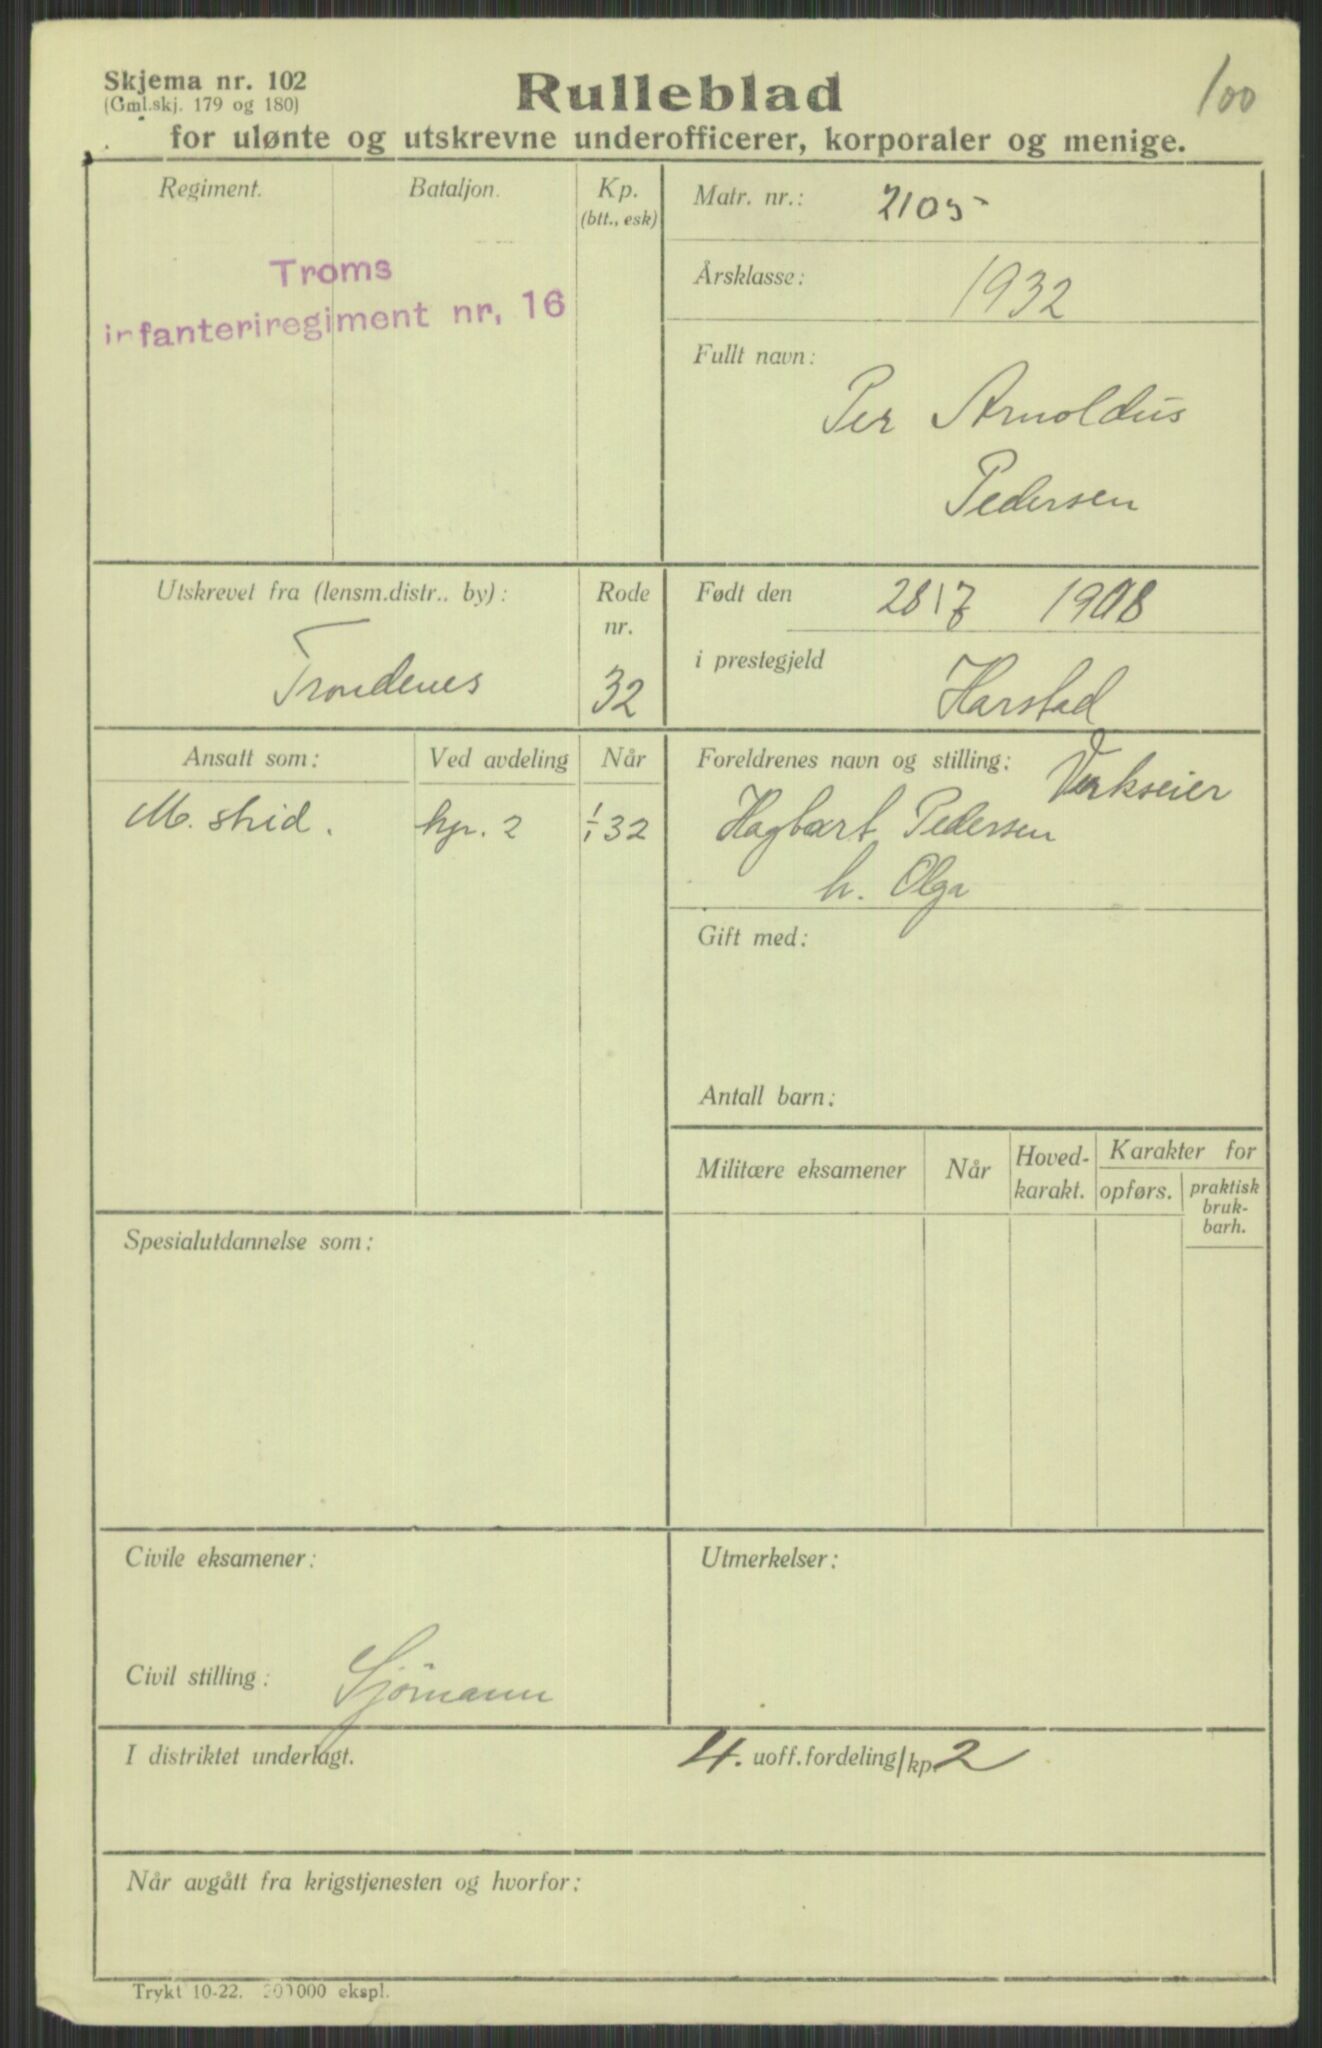 Skjema nr. 102
(Gml.skj. 179 og 180)
Rulleblad
100
for ulønte og utskrevne underofficerer, korporaler og menige.
Regiment.
Bataljon.
Kp.
(btt., esk)
Troms
infanteriregiment nr, 16
Matr. nr.: 2105
Årsklasse: 1932
Fullt navn:
Per Arnoldus
Pedersen
Utskrevet fra (lensm.distr.. by):
Trondenes
Rode
nr.
32
Født den 28/7 1908
i prestegjeld Harstad
Ansatt som:
Ved avdeling
Når
M. skid.
kp. 2
1/1 32
Foreldrenes navn og stilling: Verkseier
Hagbart Pedersen
h. Olga
Gift med:
Antall barn:
Militære eksamener
Når
Hoved-
karakt.
Karakter for
opførs.
praktisk
bruk-
barh.
Spesialutdannelse som:
Civile eksamener:
Utmerkelser:
Civil stilling: Sjømann
I distriktet underlagt.
4. uoff.fordeling/kp. 2
Når avgått fra krigstjenesten og hvorfor:
Trykt 10-22. 200000 ekspl.